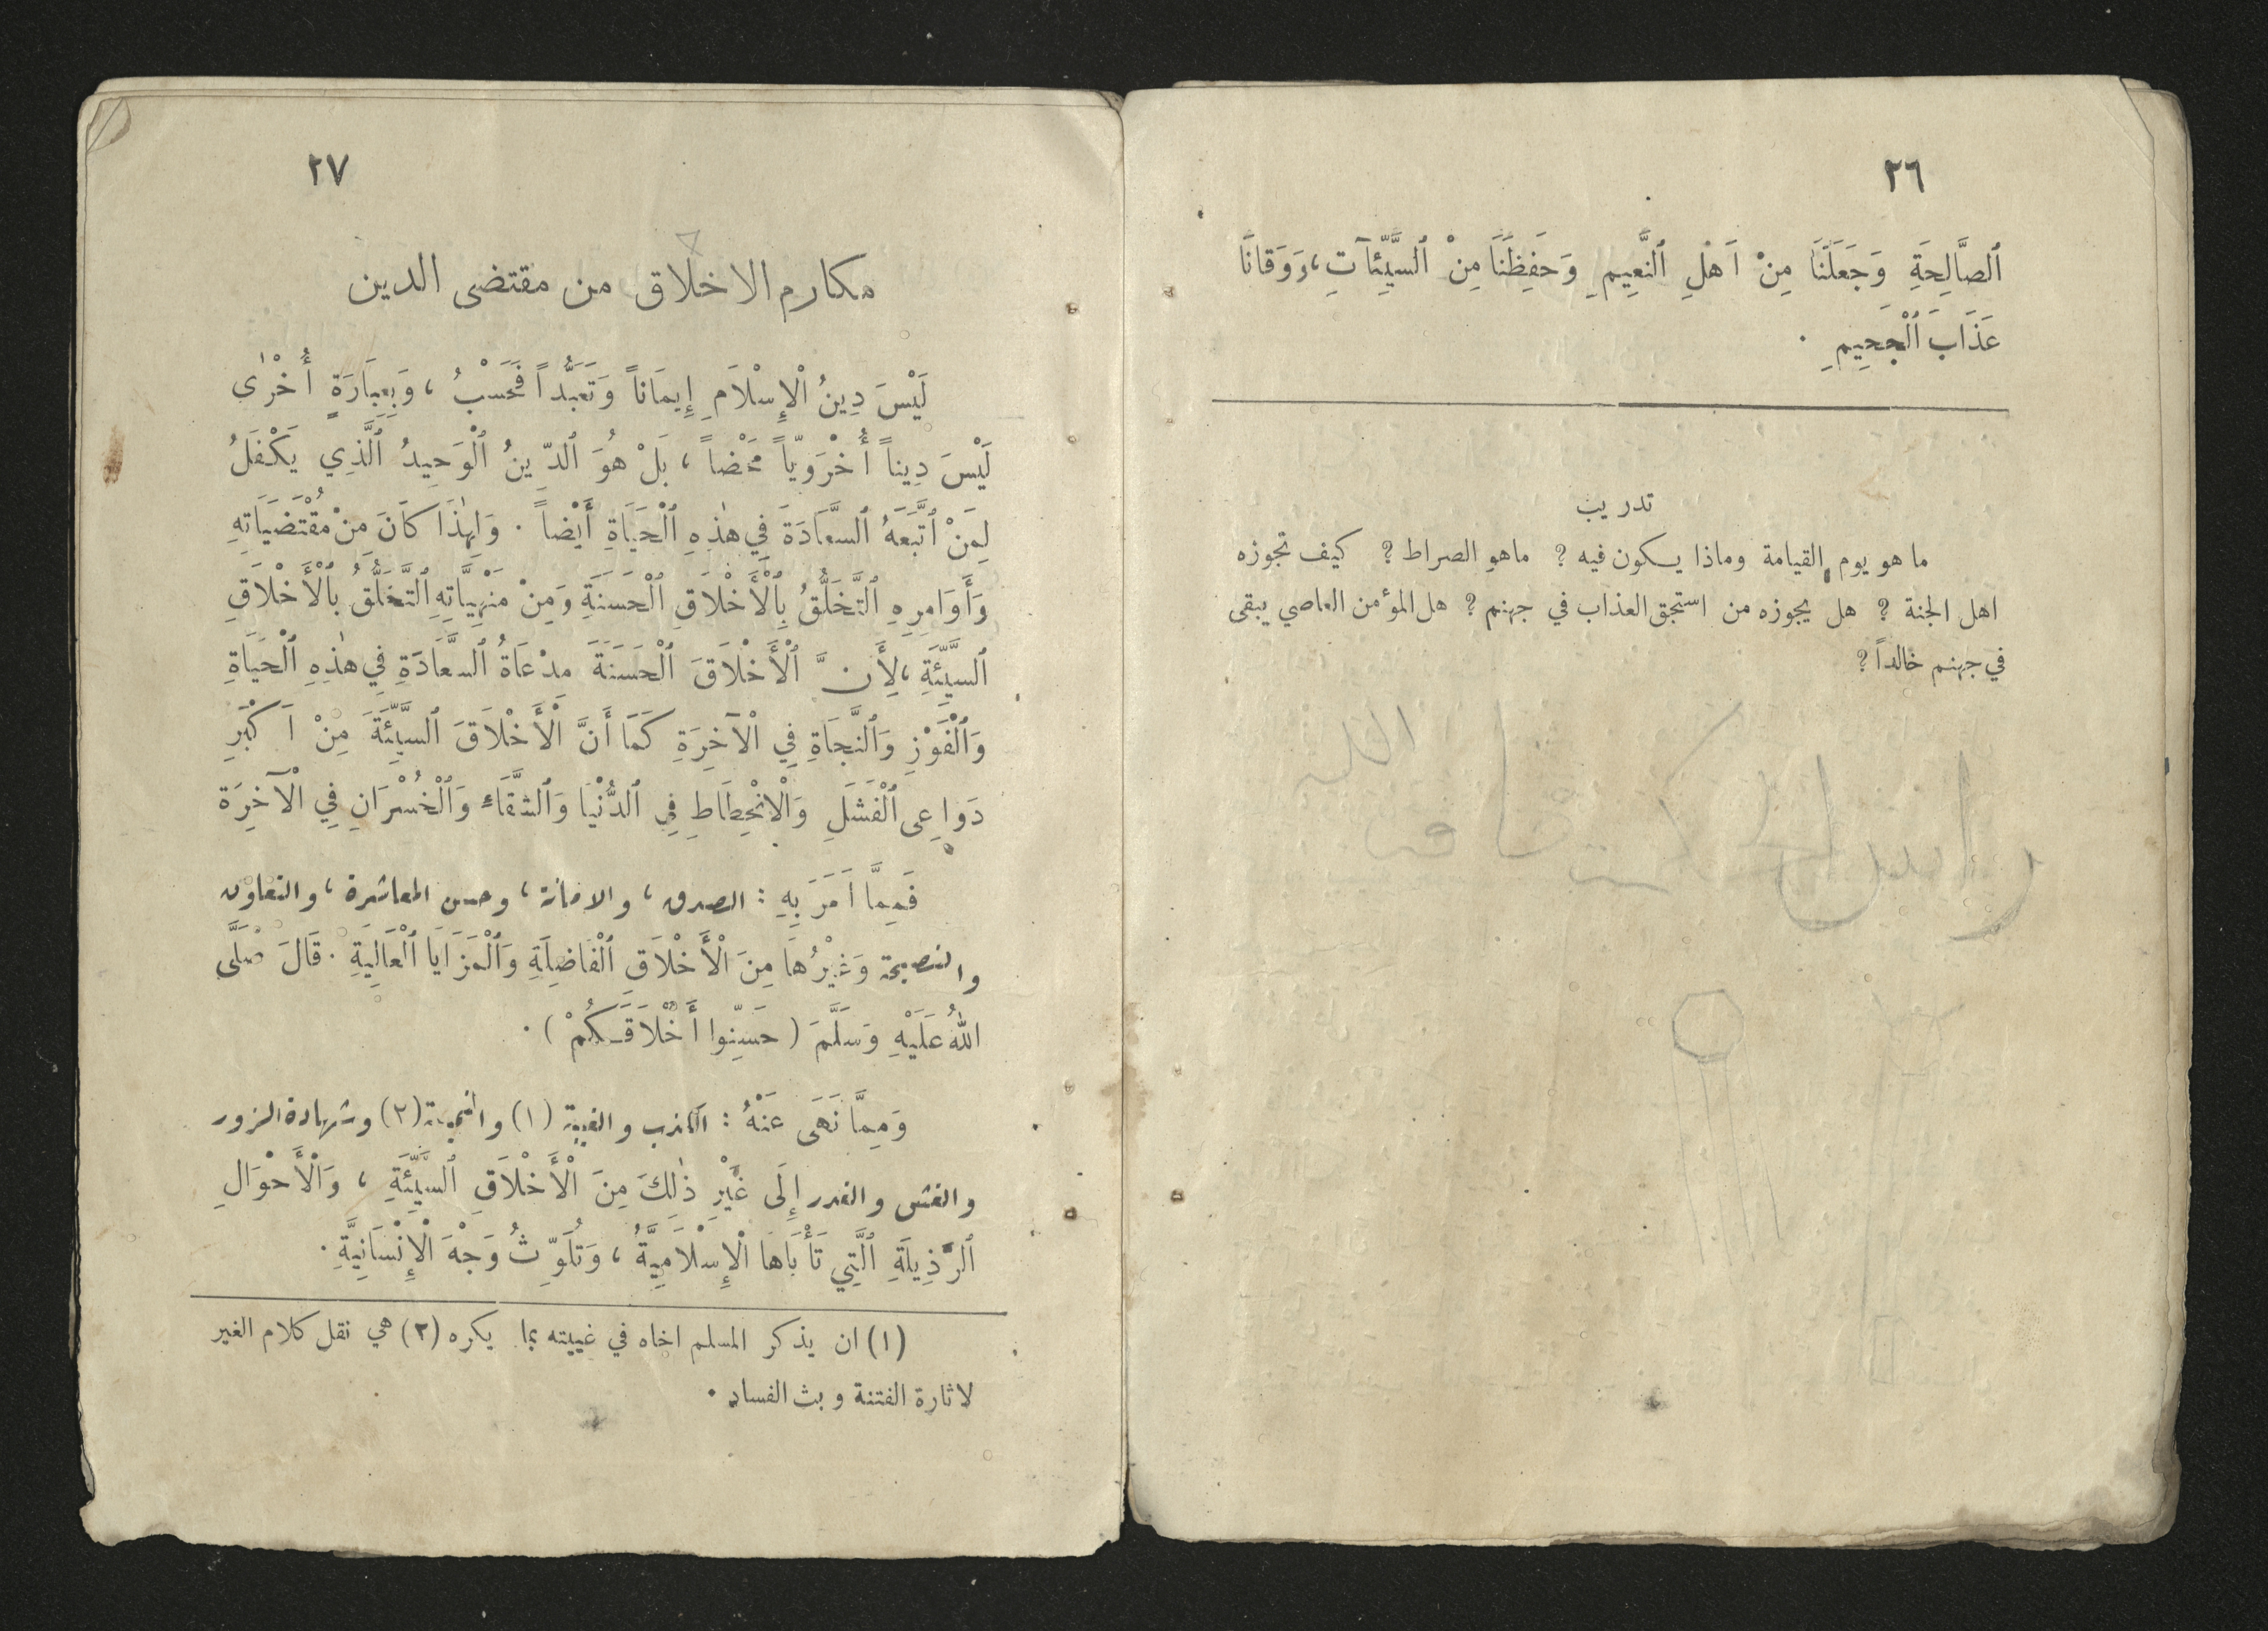 ٢٦
ٱلصَّالِحَةِ وَجَعَلَنَا مِنْ اَهْلِ ٱلنَّعِيمِ وَحَفِظَنَا مِنْ ٱلسَّيِّئَآتِ، وَوَقَانَا
عَذَابَ ٱلْجَحِيمِ .
تدريب
ما هو يوم القيامة وماذا يكون فيه ? ماهو الصراط ? كيف تجوزه
اهل الجنة ? هل يجوزه من استحق العذاب في جهنم ? هل المؤمن العاصي يبقى
في جهنم خالداً ?
٢٧
مكارم الاخلاق من مقتضى الدين
لَيْسَ دِينُ ٱلْإِسْلَامِ إِيمَاناً وَتَعَبُّداً فَحَسْبُ ، وَبِعِبَارَةٍ أُخْرٰى
لَيْسَ دِيناً أُخْرَوِيّاً مَحْضاً ، بَلْ هُوَ ٱلدِّينُ ٱلْوَحِيدُ ٱلَّذِي يَكْفَلُ
لِمَنْ ٱتَّبَعَهُ ٱلسَّعَادَةَ فِي هٰذِهِ ٱلْحَيَاةِ أَيْضاً . وَلِهٰذَا كَانَ مِنْ مُقْتَضَيَاتِهِ
وَأَوَامِرِهِ ٱلتَّخَلُّقُ بِٱلْأَخْلَاقِ ٱلْحَسَنَةِ وَمِنْ مَنْهِيَّاتِهِ ٱلتَّخَلُّقُ بِٱلْأَخْلَاقِ
ٱلسَّيِّئَةِ ، لِأَنَّ ٱلْأَخْلَاقَ ٱلْحَسَنَةَ مِدْعَاةُ ٱلسَّعَادَةِ فِي هٰذِهِ ٱلْحَيَاةِ
وَٱلْفَوْزِ وَٱلنَّجَاةِ فِي ٱلْآخِرَةِ كَمَا أَنَّ ٱلْأَخْلَاقَ ٱلسَّيِّئَةَ مِنْ اَكْبَرِ
دَوَاعِي ٱلْفَشَلِ وَٱلْانْحِطَاطِ فِي ٱلدُّنْيَا وَٱلشَّقَاءِ وَٱلْخُسْرَانِ فِي ٱلْآخِرَةِ
فَمِمَّا اَمَرَ بِهِ : الصدق ، والامانة ، وحسن المعاشرة ، والتعاون
والنصيحة وَغَيْرُهَا مِنَ ٱلْأَخْلَاقِ ٱلْفَاضِلَةِ وَٱلْمَزَايَا ٱلْعَالِيَةِ . قَالَ صَلَّى
اللهُ عَلَيْهِ وَسَلَّمَ ( حَسِّنُوا أَخْلَاقَكُمْ ) .
وَمِمَّا نَهَى عَنْهُ : الكذب والغيبة (١) والنميمة (٢) وشهادة الزور
والغش والغدر إِلَى غَيْرِ ذٰلِكَ مِنَ ٱلْأَخْلَاقِ ٱلسَّيِّئَةِ ، وَٱلْأَحْوَالِ
ٱلرَّذِيلَةِ ٱلَّتِي تَأْبَاهَا ٱلْإِسْلَامِيَّةُ ، وَتُلَوِّثُ وَجْهَ ٱلْإِنْسَانِيَّةِ .
(١) ان يذكر المسلم اخاه في غيبته بما يكره (٢) هي نقل كلام الغير
لاثارة الفتنة وبث الفساد .